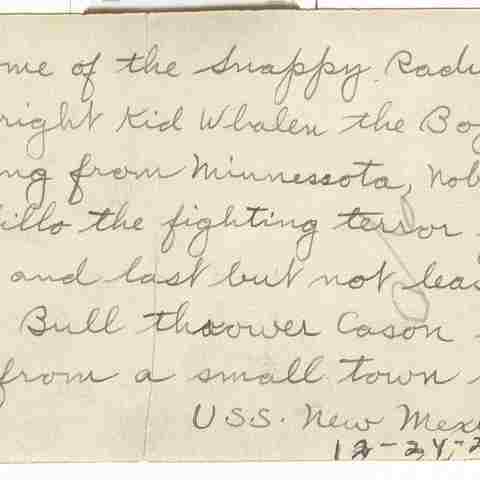 ome of the Snappy Radi
right Kid Whalen the Bo
ng from Minnesota, Nob
illo the fighting terror
and last but not leas
Bull thrower Cason
from a small town
USS. New Mexi
12-24-2